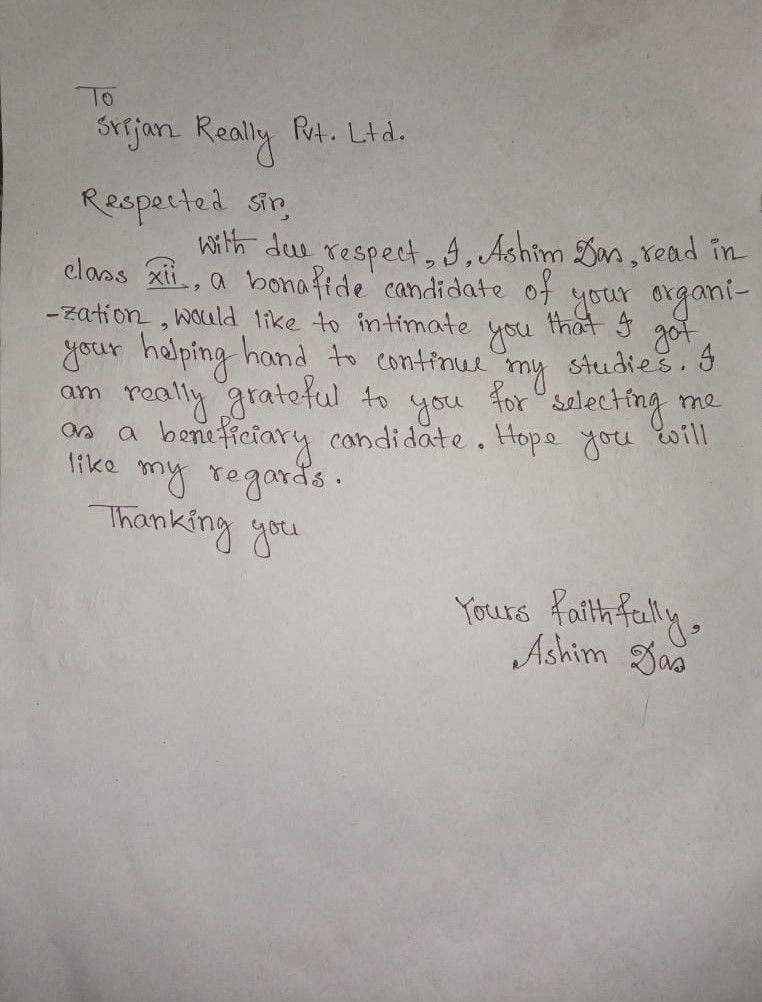 To
Srijan Really Pvt. Ltd.
Respected sir,
With due respect, I, Ashim Das, read in
class xii, a bonafide candidate of your organi-
-zation, would like to intimate you that I got
your helping hand to continue my studies. I
am really grateful to you for selecting me
as a beneficiary candidate. Hope you will
like my regards.
Thanking you
Yours faithfully,
Ashim Das